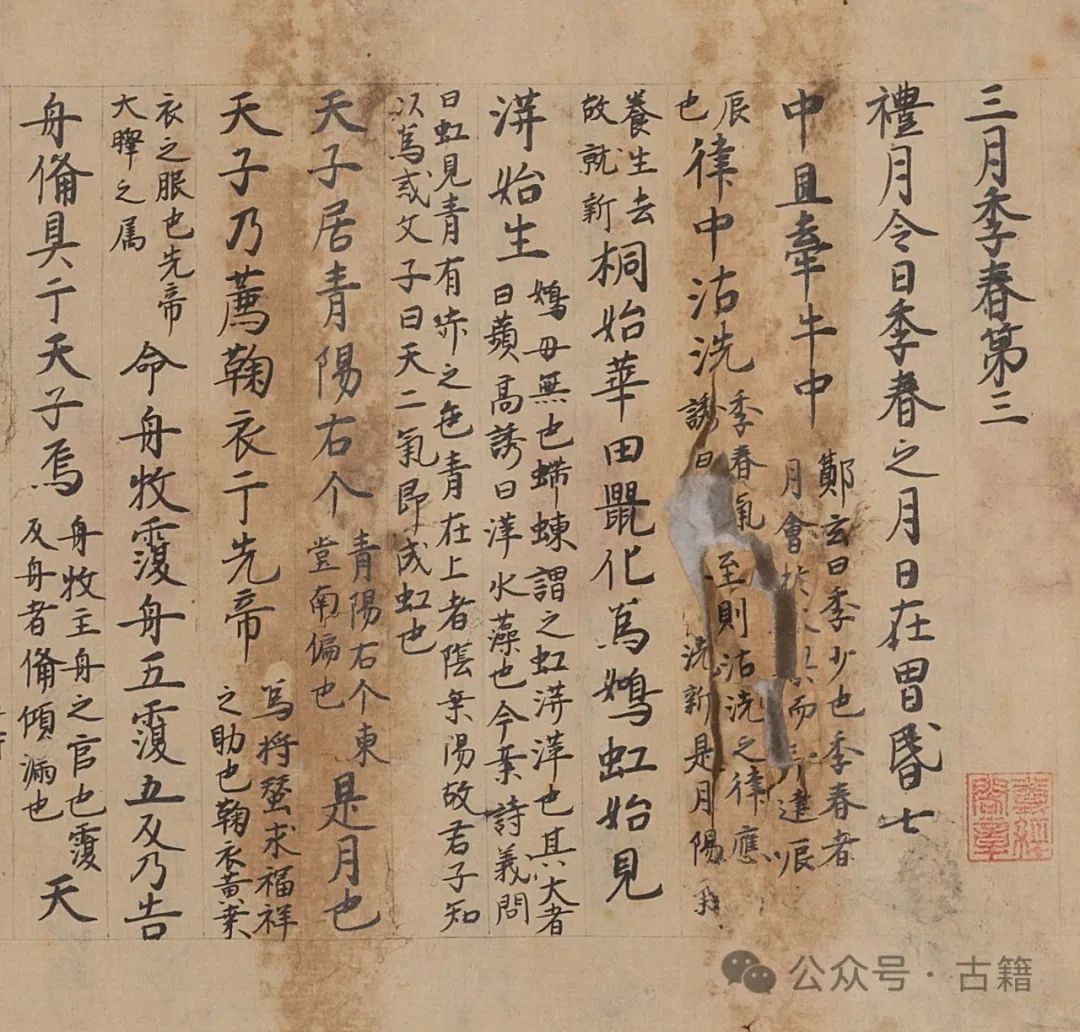 三月季春第三
禮月令曰季春之月日在胃昏七
中旦牽牛中
鄭玄曰季少也季春者
月會於而斗建辰
辰
也
律中沽洗
季春氣至則沽洗之律應
誘曰洗新是月陽
養生去
故就新
桐始華田鼠化為鴽虹始見
蓱始生
鴽母無也螮蝀謂之虹蓱萍也其大者
曰蘋高誘曰萍水藻也今案詩義問
曰虹見青有赤之色青在上者陰乘陽故君子知
以為戒文子曰天二氣即成虹也
天子居青陽右个
青陽右个東
堂南偏也
是月也
天子乃薦鞠衣于先帝
為将蚕求福祥
之助也鞠衣黃桒
衣之服也先帝
大皞之属
命舟牧覆舟五覆五反乃告
舟備具于天子焉
舟牧主舟之官也覆
反舟者備傾漏也
天
尊經閣章
公众号·古籍